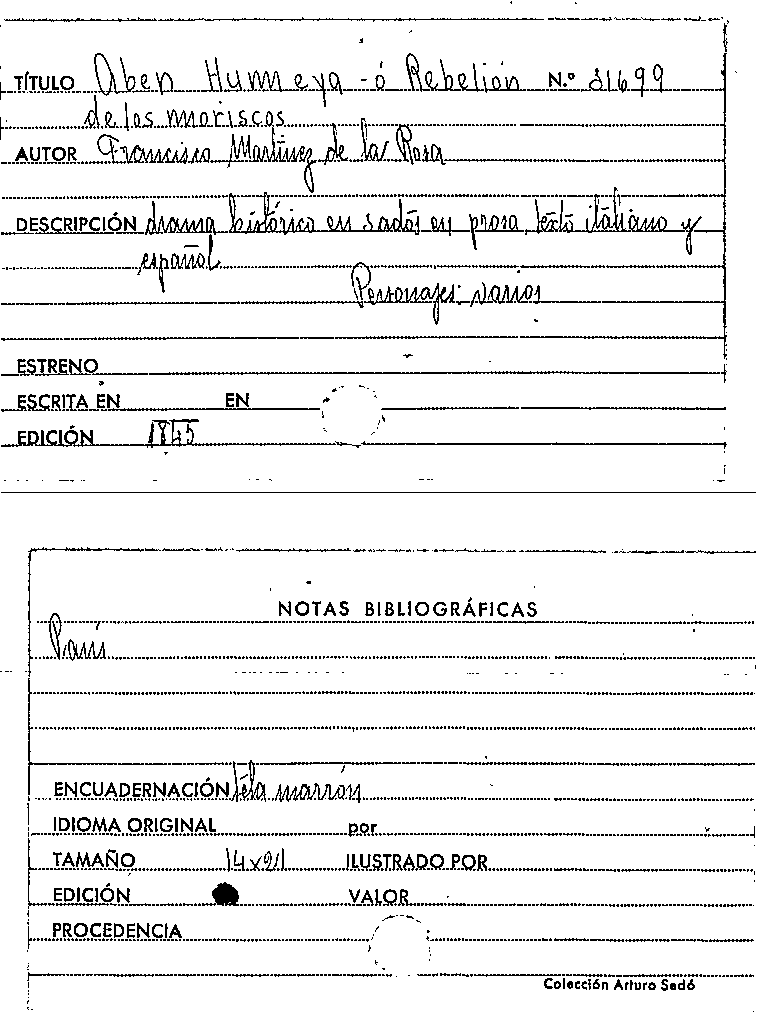 TÍTULO Aben Humeya - ó Rebelión N.º 31699
de los moriscos
AUTOR Francisco Martínez de la Rosa
DESCRIPCIÓN drama histórico en 3 actos en prosa, texto italiano y
español
Personajes: varios
ESTRENO
ESCRITA EN EN
EDICIÓN 1845
NOTAS BIBLIOGRÁFICAS
París
ENCUADERNACIÓN tela marrón
IDIOMA ORIGINAL por
TAMAÑO 14x21 ILUSTRADO POR
EDICIÓN VALOR
PROCEDENCIA
Colección Arturo Sedó